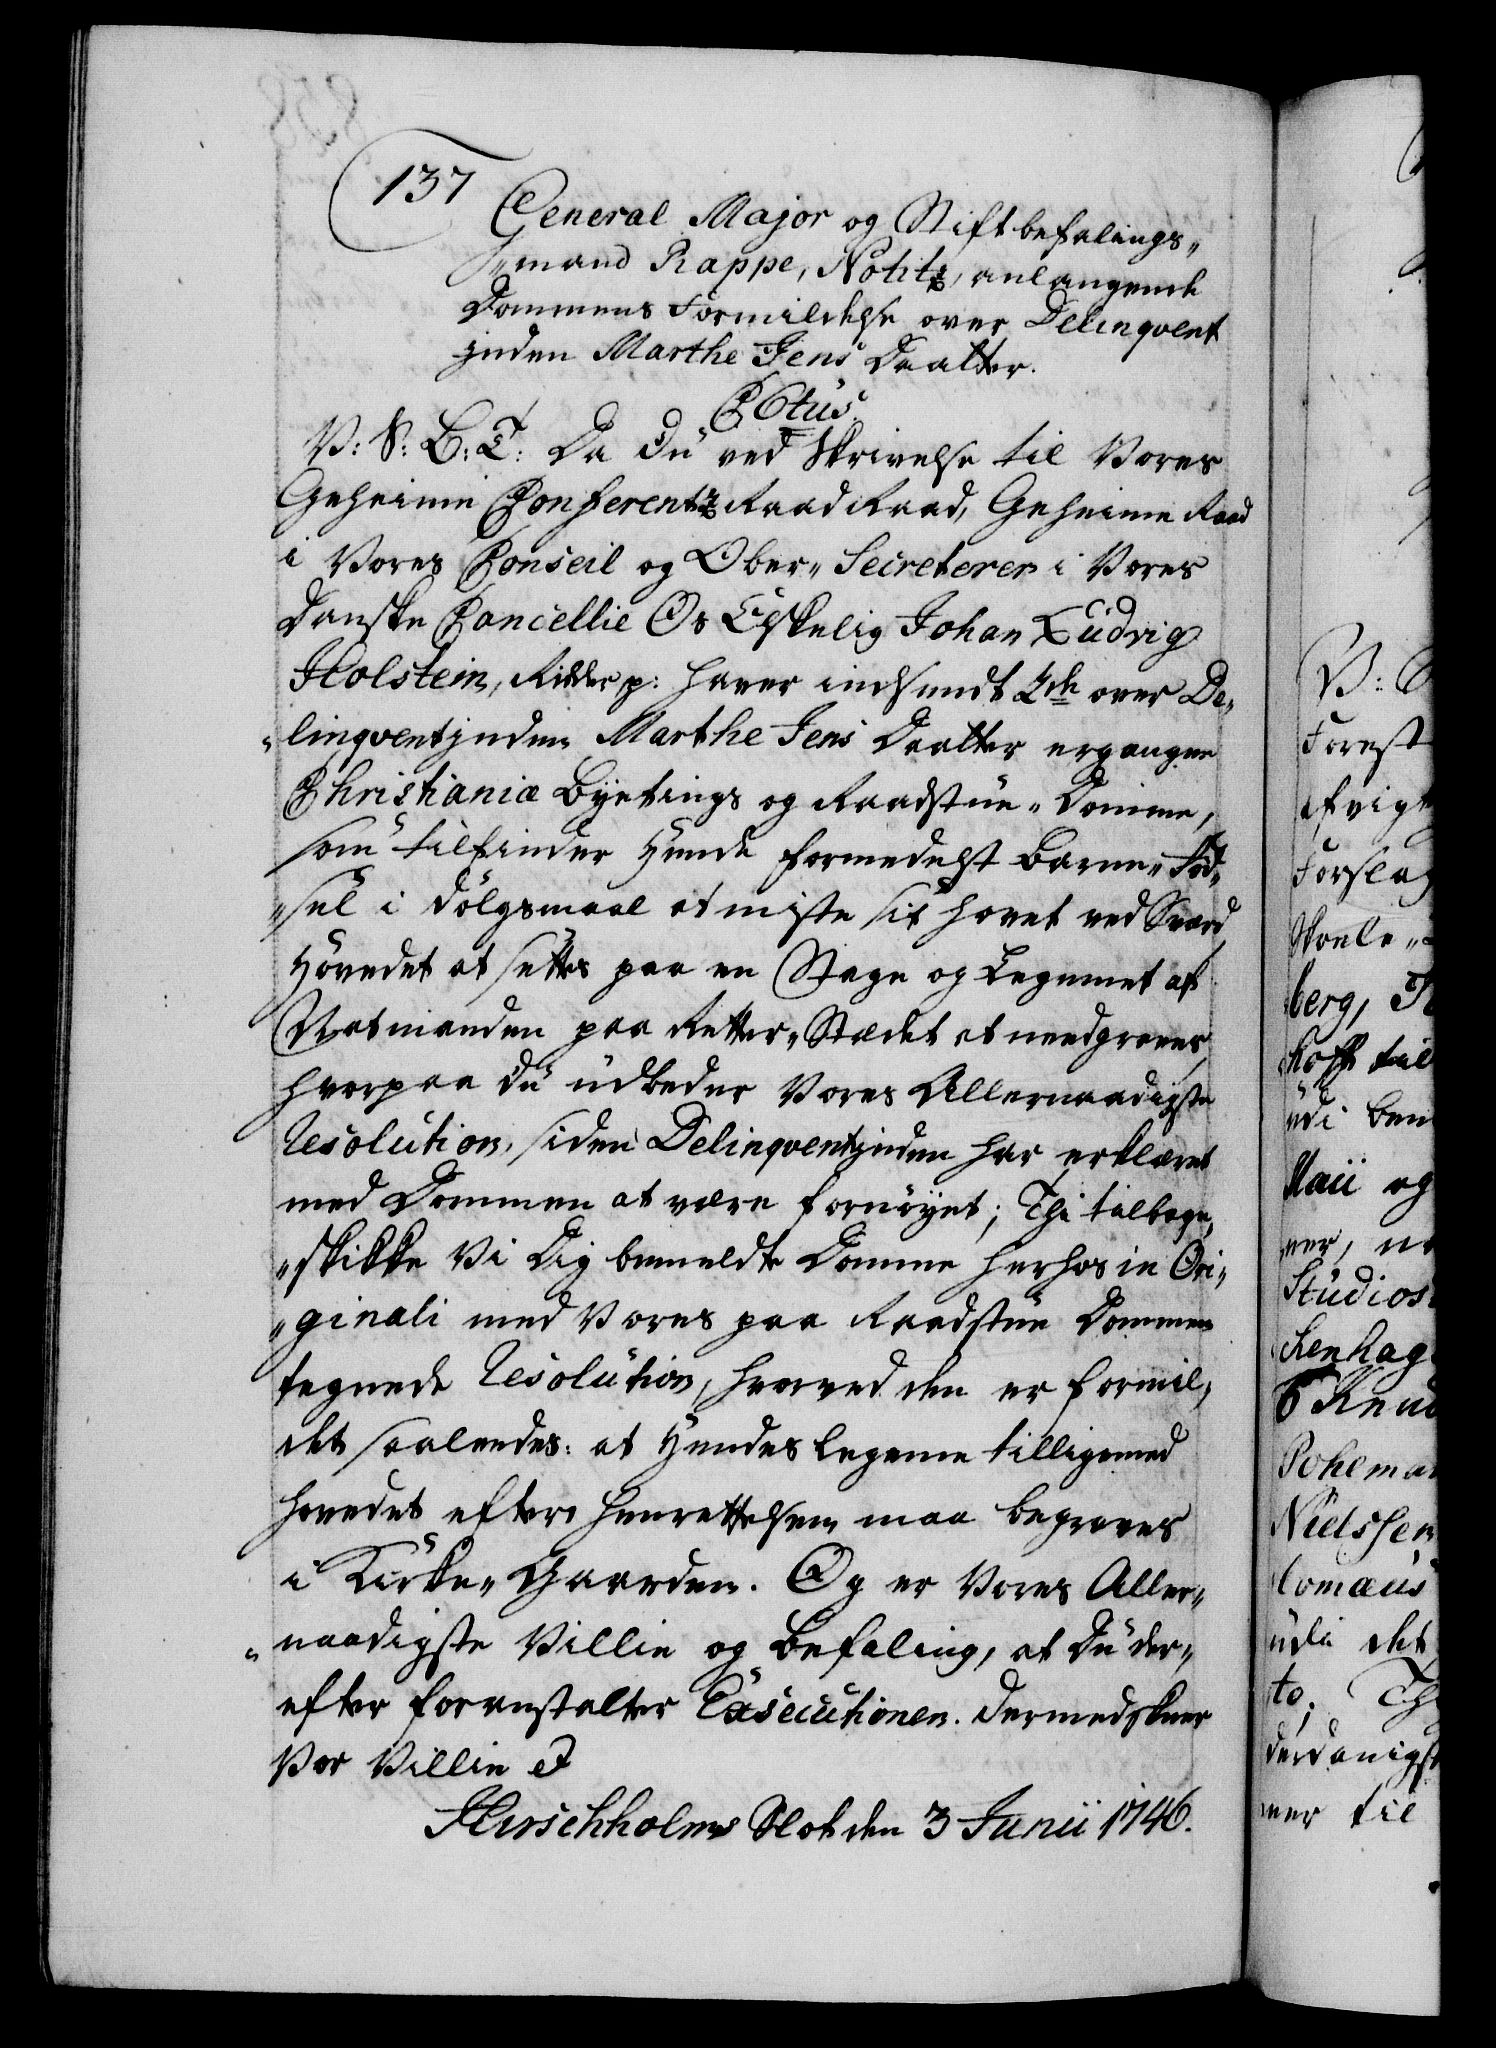 137
General Major og Stiftbefalings„
„mand Rappe, Notitz, anlangende
Dommens Formildelse over Delinqvent
inden Marthe Jens Daatter.
COtus.
V: S: G: T: Da Du ved Skrivelse til Vores
Geheime Conferentz Raad Raad, Geheime Raad
i Vores Conseil og Ober„ Secreterer i Vores
Danske Cancellie Os Elskelig Johan Ludvig
Holstein, Ridder p: haver indsendt 2de over De„
„linqventinden Marthe Jens Daatter ergangne
Christianiæ Byetings og Raadstue„ Domme,
som tilfinder Hende formedelst Barne„ Fød„
„sel i Dølgsmaal at miste sit hovet ved Sværd
Hovedet at settes paa en Stage og Legemet af
Natmanden paa Retter„ Stædet at needgraves,
hvorpaa Du udbeder Vores Allernaadigste
Resolution, siden Delinqventinden har erklæret
med Dommen at være fornøyet; Thi tilbage„
„skikke Vi Dig bemeldte Domme herhos in Ori„
„ginali med Vores paa Raadstue Dommen
tegnede Resolution, hvorved den er formil„
det saaledes: at Hendes Legeme tilligemed
hovedet efter henrettelsen maa begraves
i Kirke„ Gaarden. Og er Vores Aller„
„naadigste Villie og Befaling, at Du der„
efter foranstalter Executionen. Dermed skeer
Vor Villie &
Hirschholms Slot den 3 Junii 1746.